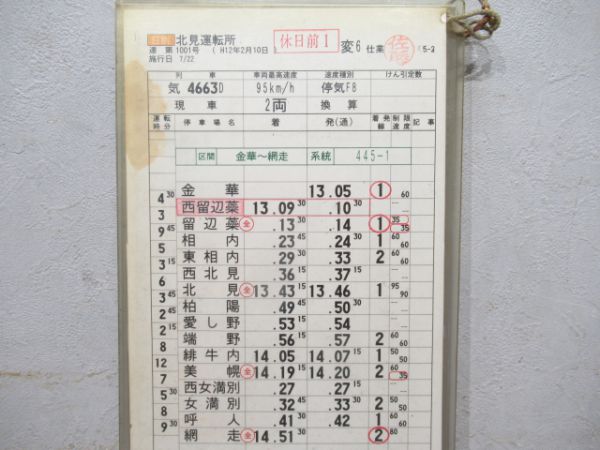 北見運転所 休日前1 変6 仕業
運 第1001号 (H12年2月10日) (5-3
施行日 7/22
列車 車両最高速度 速度種別 けん引定数
気 4663D 95km/h 停気F8
現車 2両 換算
運転時分 停車場名 着 発(通) 着発線 制限速度 記事
区間 金華~網走 系統 445-1
金華 13.05 1 60
4 30
西留辺蘂 13.09 30 .10 30
3
留辺蘂 全 .13 .14 1 35 35
9 45
相内 .23 45 .24 30 1 60 60
5
東相内 .29 .33 2 60 60
3 15
西北見 .36 15 .37 15
6
北見 全 13.43 15 13.46 1 95 90
3 45
柏陽 .49 45 .50 30
2 45
愛し野 .53 15 .54
2 15
端野 .56 15 .57 2 60 60
8
緋牛内 14.05 14.07 15 1 50 50
12
美幌 全 14.19 15 14.20 2 60 35
7
西女満別 .27 .27 15
5 30
女満別 .32 45 .33 30 2 50 50
8
呼人 .41 30 .42 1 60 60
9 30
網走 全 14.51 30 2 80